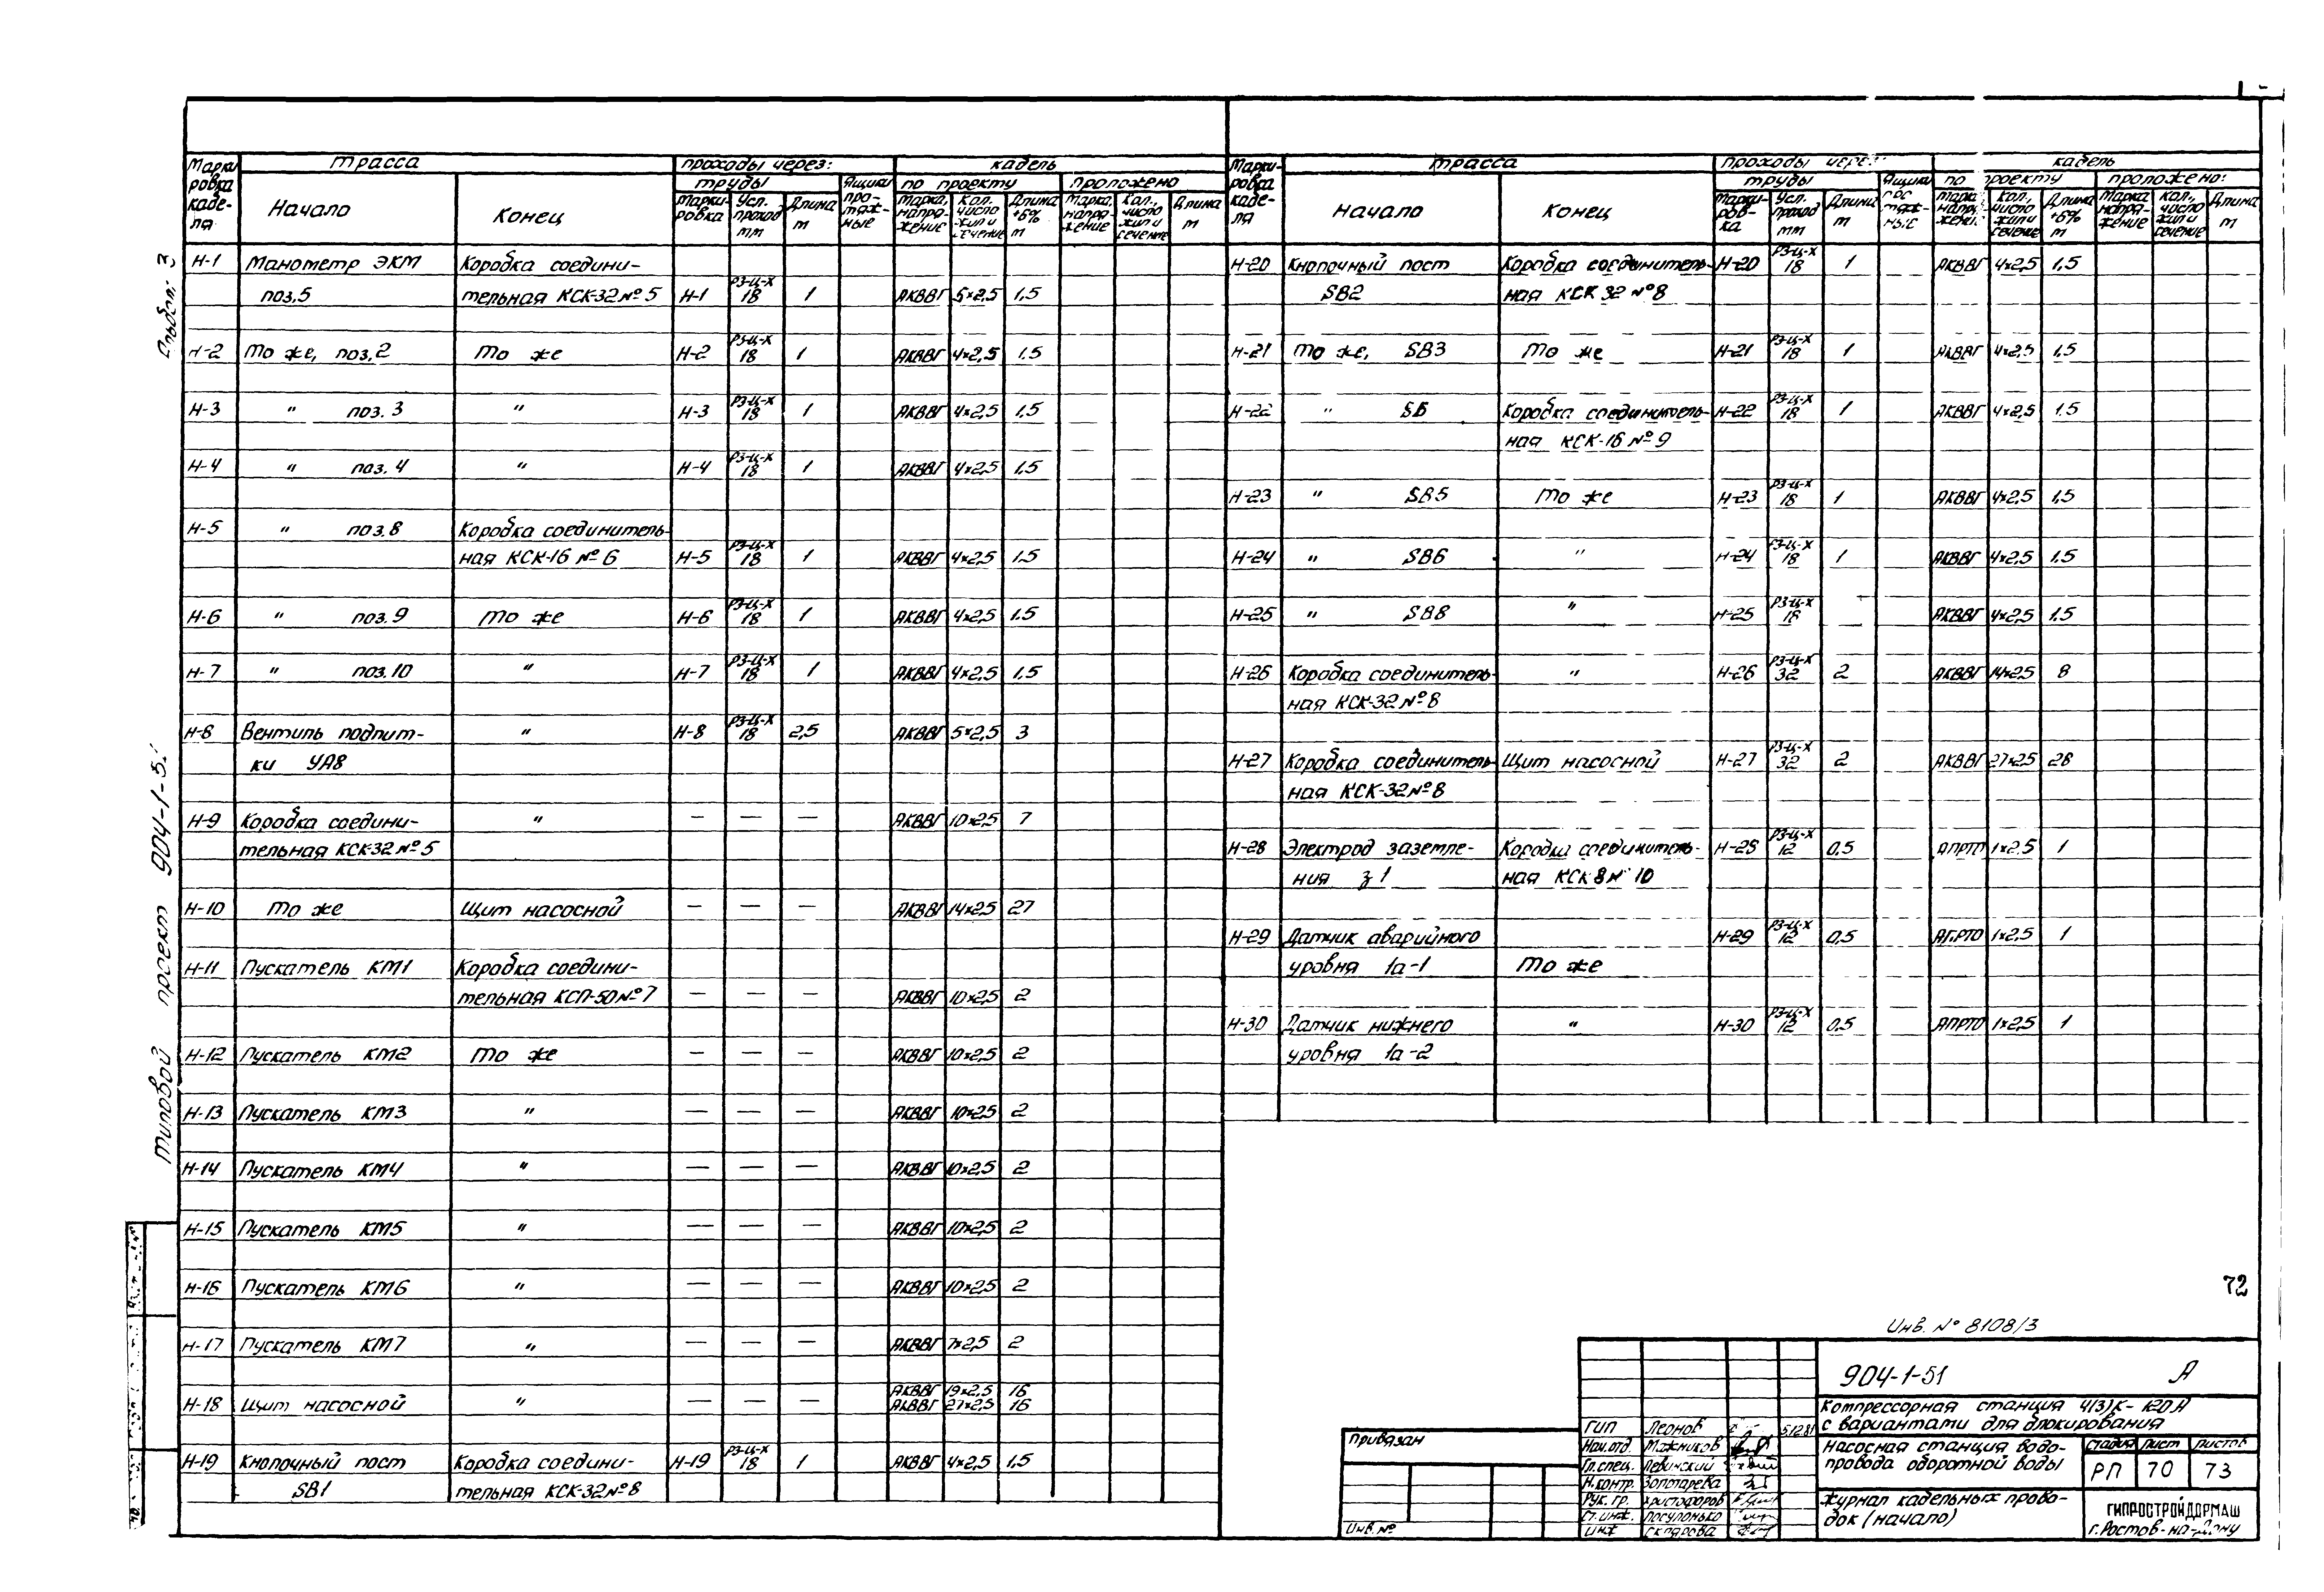 Альбом 3
Типовой проект 904-1-5
Марки ровка кабе- ля | Трасса | проходы через: | кабель
трубы | Ящики про- тяж- ные | по проекту | проложено
Начало | Конец | Марки- ровка | Усл. проход мм | Длина м | Марка, напря- жение | Кол., число жил и сечение | Длина +6% м | Марка, напря- жение | Кол., число жил и сечение | Длина м
Н-1 Манометр ЭКМ Коробка соедини-
поз.5 тельная КСК-32 №5 Н-1 РЗ-Ц-Х 18 1 АКВВГ 5×2,5 1,5
Н-2 То же, поз.2 То же Н-2 РЗ-Ц-Х 18 1 АКВВГ 4×2,5 1,5
Н-3 " поз. 3 " Н-3 РЗ-Ц-Х 18 1 АКВВГ 4×2,5 1,5
Н-4 " поз. 4 " Н-4 РЗ-Ц-Х 18 1 АКВВГ 4×2,5 1,5
Н-5 " поз. 8 Коробка соединитель-
ная КСК-16 № 6 Н-5 РЗ-Ц-Х 18 1 АКВВГ 4×2,5 1,5
Н-6 " поз. 9 То же Н-6 РЗ-Ц-Х 18 1 АКВВГ 4×2,5 1,5
Н-7 " поз. 10 " Н-7 РЗ-Ц-Х 18 1 АКВВГ 4×2,5 1,5
Н-8 Вентиль подпит- " Н-8 РЗ-Ц-Х 18 2,5 АКВВГ 5×2,5 3
ки УА8
Н-9 Коробка соедини- " — — — АКВВГ 10×2,5 7
тельная КСК-32 №5
Н-10 То же Щит насосной — — — АКВВГ 14×2,5 27
Н-11 Пускатель КМ1 Коробка соедини-
тельная КСП-50 №7 — — — АКВВГ 10×2,5 2
Н-12 Пускатель КМ2 То же — — — АКВВГ 10×2,5 2
Н-13 Пускатель КМ3 " — — — АКВВГ 10×2,5 2
Н-14 Пускатель КМ4 " — — — АКВВГ 10×2,5 2
Н-15 Пускатель КМ5 " — — — АКВВГ 10×2,5 2
Н-16 Пускатель КМ6 " — — — АКВВГ 10×2,5 2
Н-17 Пускатель КМ7 " — — — АКВВГ 7×2,5 2
АКВВГ 19×2,5 16
Н-18 Щит насосной " — — — АКВВГ 27×2,5 16
Н-19 Кнопочный пост Коробка соедини- Н-19 РЗ-Ц-Х 18 1 АКВВГ 4×2,5 1,5
SB1 тельная КСК-32 №8
Марки- ровка кабе- ля | Трасса | проходы через: | кабель
трубы | Ящики | по проекту | проложено:
Начало | Конец | Марки- ров- ка | Усл. проход мм | Длина м | Марка напр. жение | Кол., число жил и сечение | Длина +6% м | Марка напря- жение | Кол., число жил и сечение | Длина м
Н-20 Кнопочный пост Коробка соединитель- Н-20 РЗ-Ц-Х 18 1 АКВВГ 4×2,5 1,5
SB2 ная КСК 32 №8
Н-21 То же, SB3 То же Н-21 РЗ-Ц-Х 18 1 АКВВГ 4×2,5 1,5
Н-22 " SБ Коробка соединитель- Н-22 РЗ-Ц-Х 18 1 АКВВГ 4×2,5 1,5
ная КСК-16 №9
Н-23 " SB5 То же Н-23 РЗ-Ц-Х 18 1 АКВВГ 4×2,5 1,5
Н-24 " SB6 " Н-24 РЗ-Ц-Х 18 1 АКВВГ 4×2,5 1,5
Н-25 " SB8 " Н-25 РЗ-Ц-Х 18 АКВВГ 4×2,5 1,5
Н-26 Коробка соединитель- " Н-26 РЗ-Ц-Х 32 2 АКВВГ 14×2,5 8
ная КСК-32 №8
Н-27 Коробка соединитель- Щит насосной Н-27 РЗ-Ц-Х 32 2 АКВВГ 27×2,5 28
ная КСК-32 №8
Н-28 Электрод заземле- Коробка соединитель- Н-28 РЗ-Ц-Х 12 0,5 АПРТО 1×2,5 1
ния з 1 ная КСК 8 № 10
Н-29 Датчик аварийного Н-29 РЗ-Ц-Х 12 0,5 АПРТО 1×2,5 1
уровня 1а-1 То же
Н-30 Датчик нижнего " Н-30 РЗ-Ц-Х 12 0,5 АПРТО 1×2,5 1
уровня 1а-2
72
Инв. № 8108/3
904-1-51 А
Компрессорная станция 4(3)К-120А
с вариантами для блокирования
Насосная станция водо-
провода оборотной воды
Стадия Лист Листов
РП 70 73
Журнал кабельных прово-
док (начало)
ГИПРОСТРОЙДОРМАШ
г. Ростов-на-Дону
Привязан
Инв. №
ГИП Леонов
Нач. отд. Мажников
Гл. спец. Левинский
Н. контр. Золотарева
Рук. гр. Христофоров
Ст. инж.
Инж Склярова